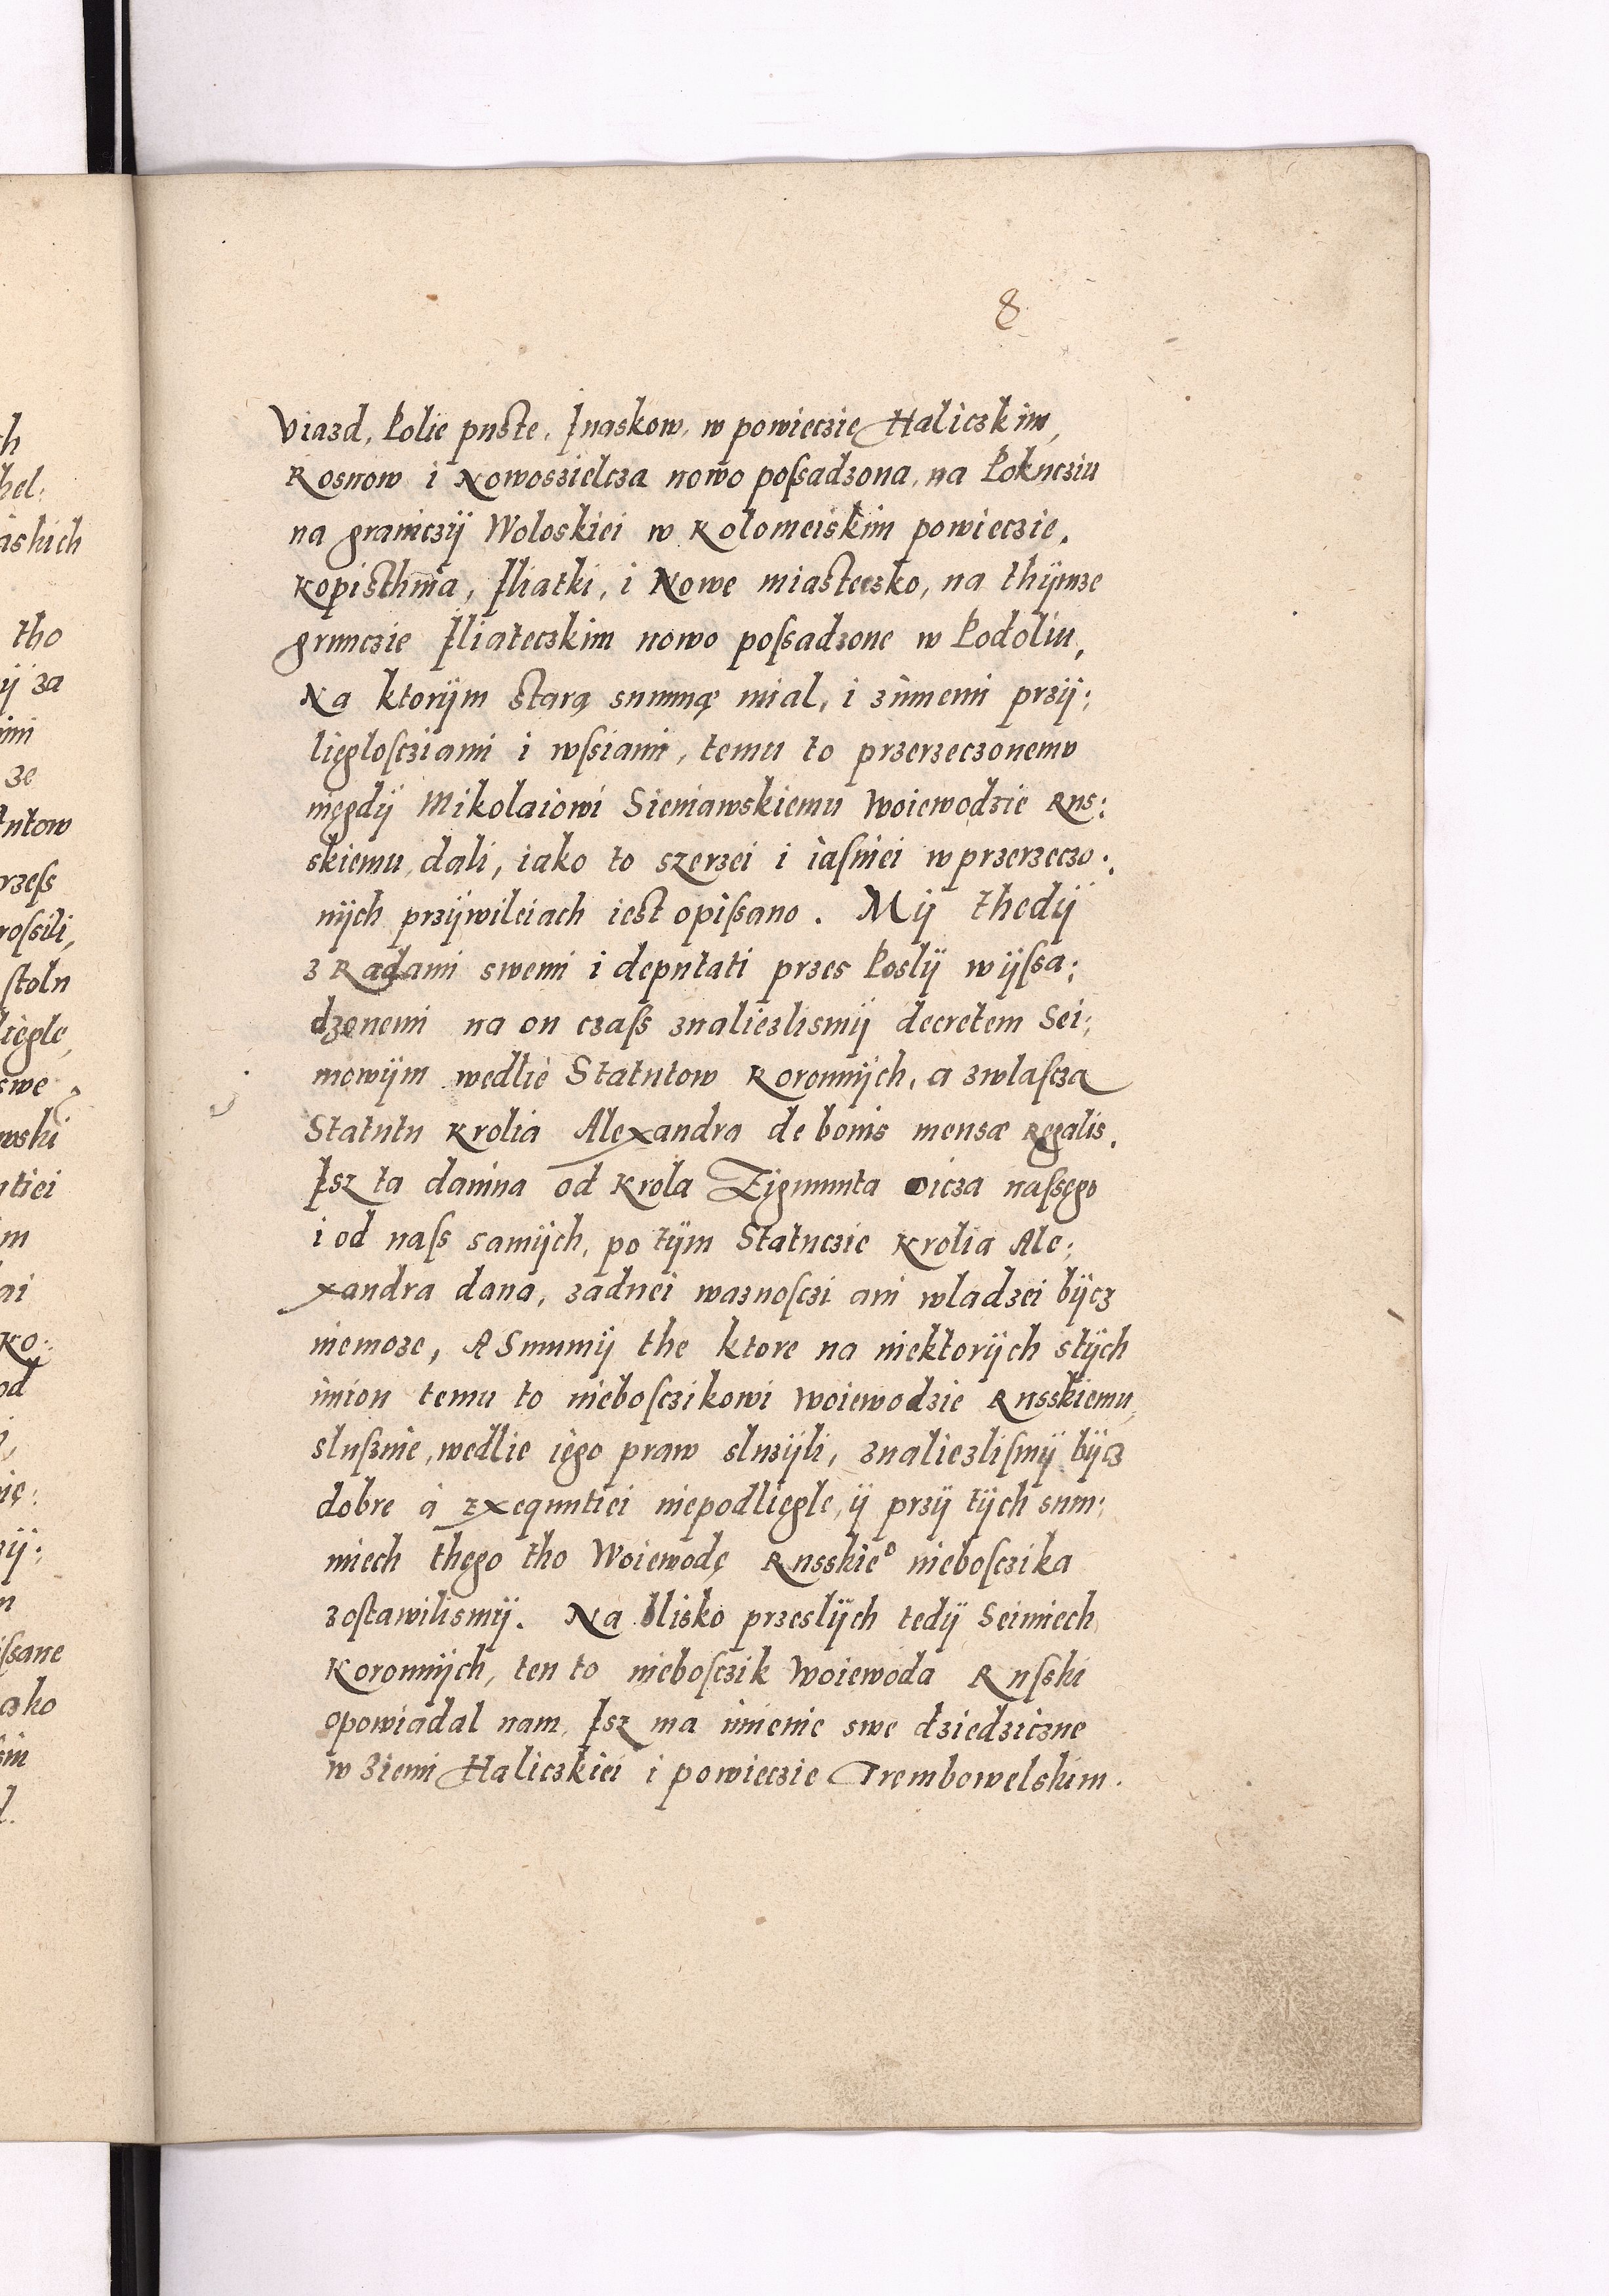 8
Viazd, Polie puste, Jnaskow, w powieczie Haliczkim,
Rosnow i Nowoszielcza nowo possadzona, na Pokucziu
na graniczÿ Woloskiei w Kolomeiskim powieczie,
Kopisthinia, Jliatki, i Nowe miasteczko, na thÿmze
grunczie Jliateczkim nowo possadzone w Podoliu,
Na ktorÿm starą summę mial, i zinnemi przÿ:
lięgłosciami i wssiami, temu to przerzeczonemu
nięgdÿ Mikolaiowi Sieniawskiemu Woiewodzie Rus:
skiemu, dali, iako to szerzei i iasniei w przerzeczo:
nÿch przÿwileiach iest opissano. Mÿ thedÿ
z Radami swemi i deputati przes Poslÿ wÿssa:
dzonemi na on czass znalieзlismÿ decretem Sei:
mowÿm wedlie Statutow Koronnÿch, a zwlascza
Statutu Krolia Alexandra de bonis mensæ Regalis.
Jsz ta danina od Krola Zigmunta oicza nassęgo
i od nass samÿch, po tÿm Statuczie Krolia Ale:
xandra dana, zadnei waznosczi ani wladzei bÿcz
niemoze, A Summÿ the ktore na niektorÿch stÿch
imion temu to niebosczikowi Woiewodzie Russkiemu,
slusznie, wedlie iego praw sluzÿli, znaliezlismÿ bÿcz
dobre a exequutiei niepodliegle, ÿ przÿ tÿch sum:
miech thego tho Woiewodę Russkieº niebosczika
zostawilismÿ. Na blisko przeslÿch tedÿ Seimiech
Koronnÿch, ten to niebosczik Woiewoda Russki
opowiadal nam, Jsz ma imienie swe dziedziczne
w Ziemi Haliczkiei i powieczie Trembowelskim.